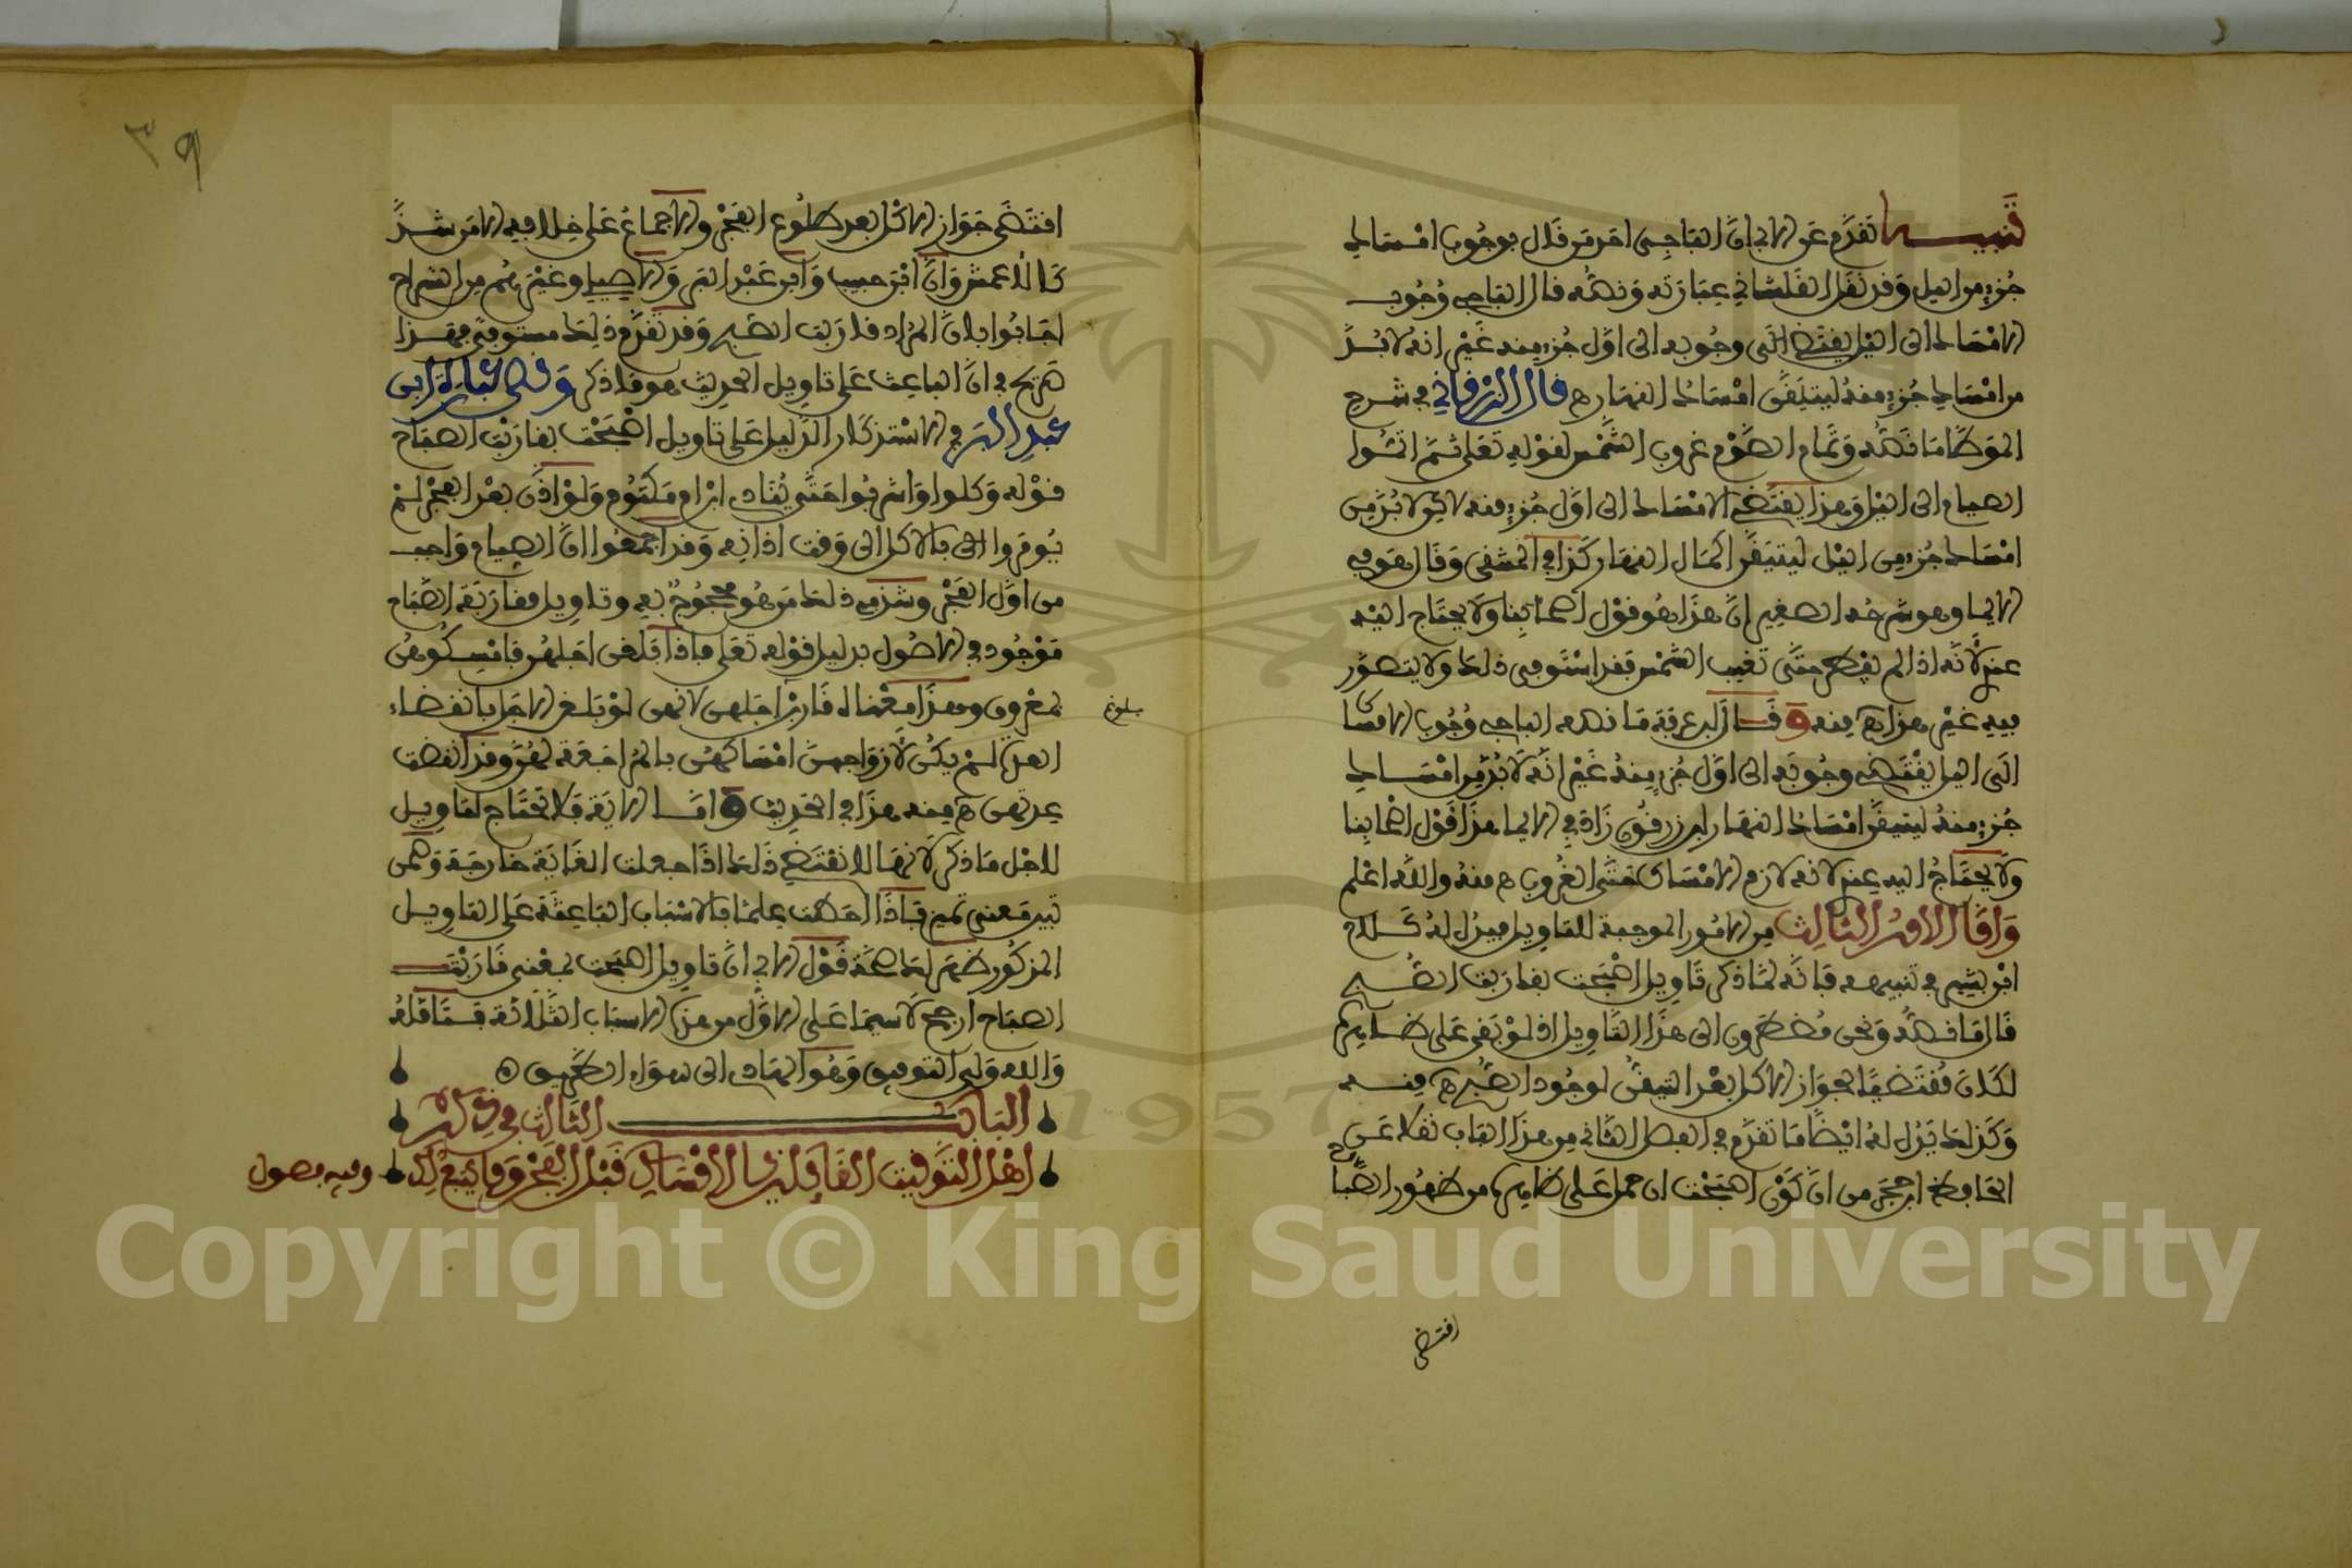 تنبيه تقدم عن الابي ان الباجي احد من قال بوجوب امساك
جزء من الليل وقد نقل القلشاني عبارته ونصه قال الباجي وجوب
الامساك الى الليل يقتضي وجوبه الى اول جزء منه غير انه لا بد
من امساك جزء منه ليتيقن امساك النهار ه قال الزرقاني في شرح
الموطا ما نصه وتمام الصوم غروب الشمس لقوله تعلى ثم اتموا
الصيام الى الليل وهذا يقتضي الامساك الى اول جزء منه لاكن لا بد من
امساك جزء من الليل ليتيقن اكمال النهار كذا في المنتقى وقال هو في
الايماء وهو شرحه الصغير ان هذا هو قول اصحابنا ولا يحتاج اليه
عندي لانه اذا لم يفطر حتى تغيب الشمس فقد استوفى ذلك ولا يتصور
فيه غير هذا ه منه وقال ابن عرفة ما نصه الباجي وجوب الامساك
الى الليل يقتضي وجوبه الى اول جزء منه غير انه لا بد من امساك
جزء منه ليتيقن امساك النهار ابن زرقون زاد في الايماء هذا قول اصحابنا
ولا يحتاج اليه عندي لانه لازم الامساك حتى الغروب ه منه والله اعلم
واما الامر الثالث من الامور الموجبة للتاويل فيدل له كلام
ابن بشير في تنبيهه فانه لما ذكر تاويل اصبحت بقاربت الصبح
قال ما نصه ونحن مضطرون الى هذا التاويل اذ لو بقي على ظاهره
لكان مقتضيا لجواز الاكل بعد التيقن لوجود الصبح ه منه
وكذلك يدل له ايضا ما تقدم في الفصل الثاني من هذا الباب نقلا عن
الحافظ ابن حجر من ان كون اصبحت ان حمل على ظاهره من ظهور الصباح
اقتضى
اقتضى جواز الاكل بعد طلوع الفجر والاجماع على خلافه الا من شذ
كالاعمش وان ابن حبيب وابن عبد البر والاصيلي وغيرهم من الشراح
اجابوا بان المراد قاربت الصبح وقد تقدم ذلك مستوفى فهذا
صريح في ان الباعث على تاويل الحديث هو ما ذكر وفي عبارة ابي
عبد البر في الاستذكار الدليل على تاويل اصبحت بقاربت الصباح
قوله وكلوا واشربوا حتى ينادي ابن ام مكتوم ولو اذن بعد الفجر لم
يومروا بالاكل الى وقت اذانه وقد اجمعوا ان الصيام واجب
من اول الفجر وشذ في ذلك من هو محجوج به وتاويل مقاربة الصباح
موجود في الاصول بدليل قوله تعلى فاذا بلغن اجلهن فامسكوهن
بمعروف وهذا معناه قاربن اجلهن لانهن لو بلغن الاجل بانقضاء
بلوغ
العدة لم يكن لازواجهن امساكهن بالمراجعة لهن وقد انقضت
عدتهن ه منه هذا في الحديث واما الاية فلا تحتاج لتاويل
لاجل ما ذكر لانها لا تقتضي ذلك اذا جعلت الغاية خارجة وهي
تبين معنى تميز فاذا احطت علما بالاسباب الباعثة على التاويل
المذكور ظهر لك صحة قول الابي ان تاويل اصبحت بمعنى قاربت
الصباح ارجح لا سيما على الاول من هذه الاسباب الثلاثة فتامله
والله ولي التوفيق وهو الهادي الى سواء الطريق
الباب الثالث في ذكر
اهل التوقيت القائلين بالامساك قبل الفجر وما يتبع ذلك وفيه فصول
٣٩